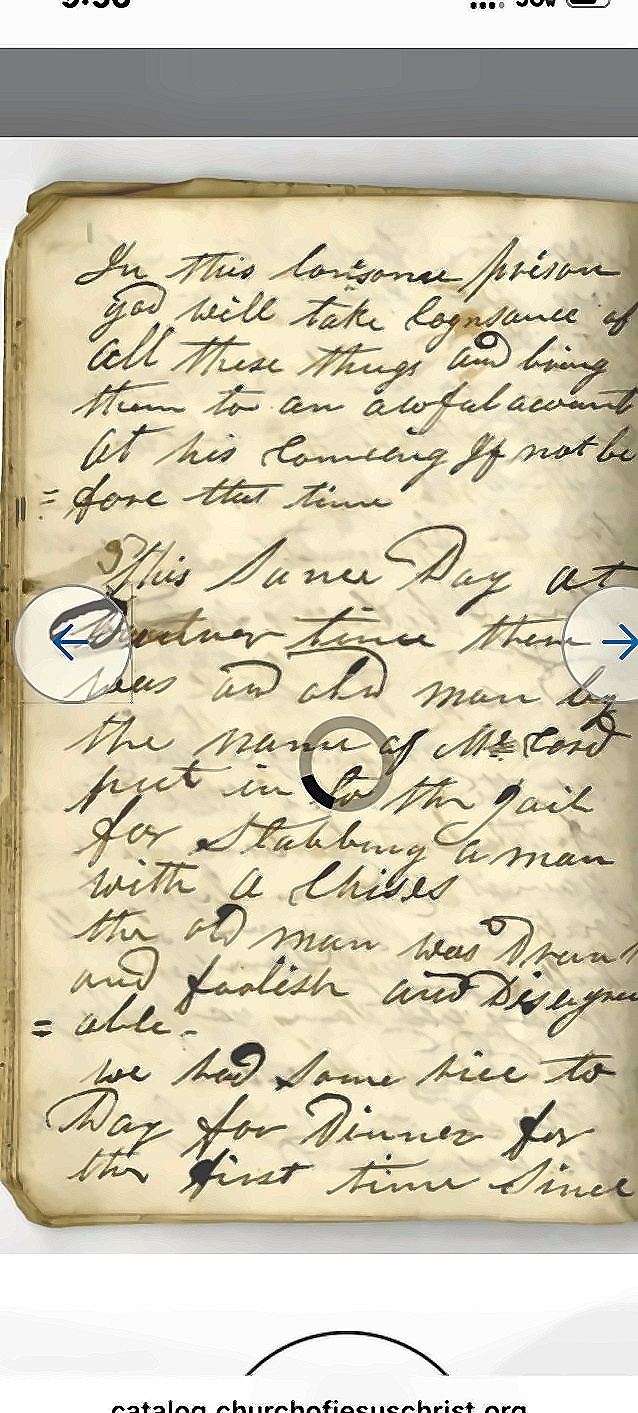 9:56
50W
In this lonsome prison
god will take Cognsance of
all these things and bring
them to an awful acount
At his Comeing If not be
= fore that time
This Same Day at
time there
was an old man by
the name of Mc Cord
put in to the Jail
for Stabbing a man
with a Chisel
the old man was Drun
and foolish and Disagree
= able -
we had Some rice to
Day for Dinner for
the first time Since
catalog.churchofjesuschrist.org